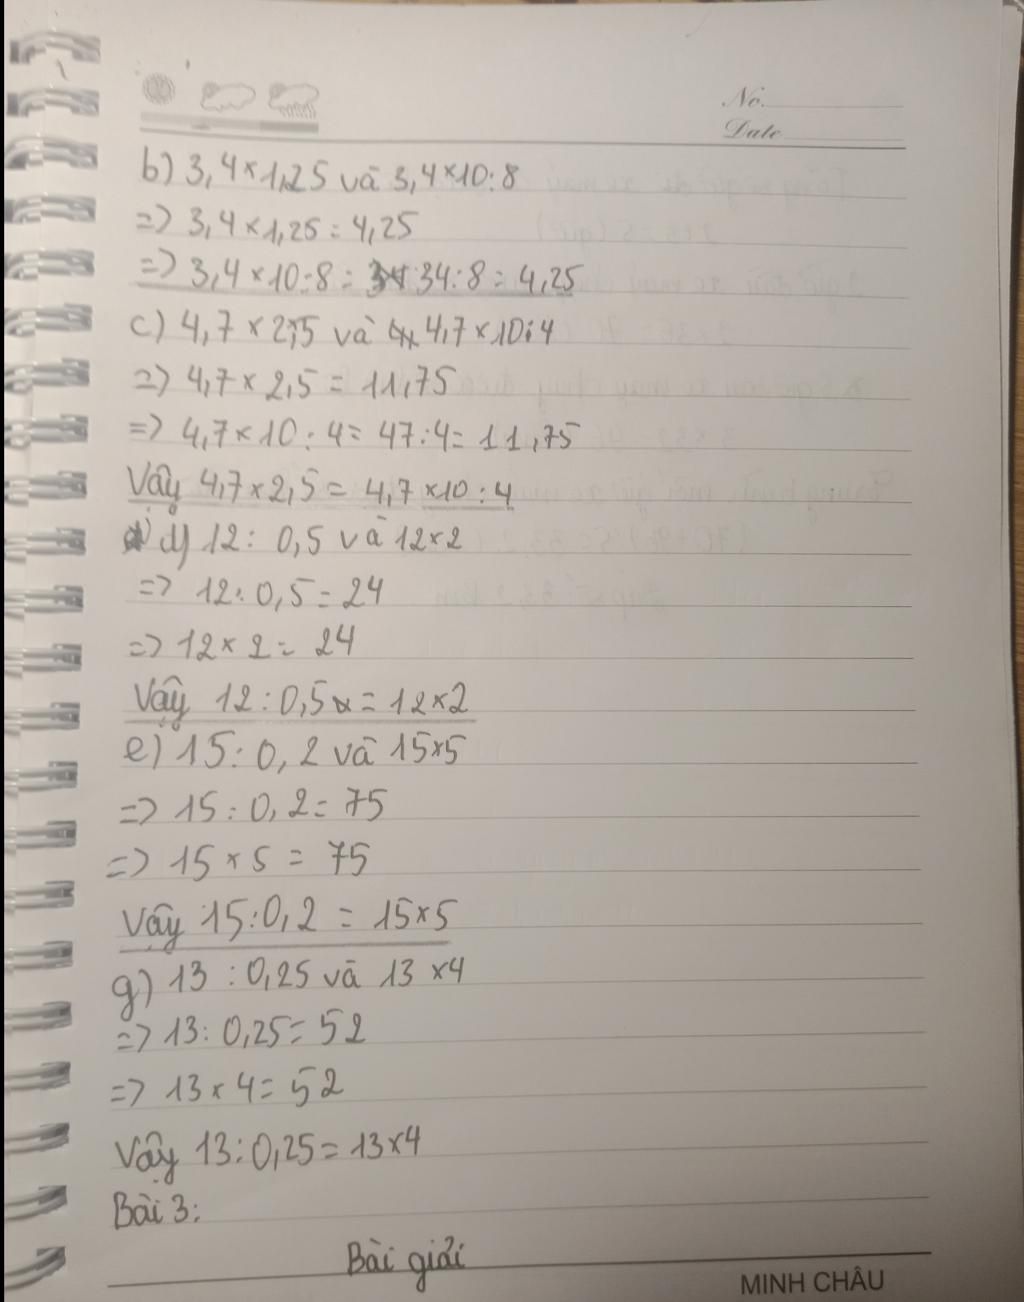 No.
Date
b) 3,4 × 1,25 và 3,4 × 10 : 8
=> 3,4 × 1,25 = 4,25
=> 3,4 × 10 : 8 = 34 : 8 = 4,25
c) 4,7 × 2,5 và 4,7 × 10 : 4
=> 4,7 × 2,5 = 11,75
=> 4,7 × 10 : 4 = 47 : 4 = 11,75
Vậy 4,7 × 2,5 = 4,7 × 10 : 4
d) 12 : 0,5 và 12 × 2
=> 12 : 0,5 = 24
=> 12 × 2 = 24
Vậy 12 : 0,5 = 12 × 2
e) 15 : 0,2 và 15 × 5
=> 15 : 0,2 = 75
=> 15 × 5 = 75
Vậy 15 : 0,2 = 15 × 5
g) 13 : 0,25 và 13 × 4
=> 13 : 0,25 = 52
=> 13 × 4 = 52
Vậy 13 : 0,25 = 13 × 4
Bài 3:
Bài giải
MINH CHÂU